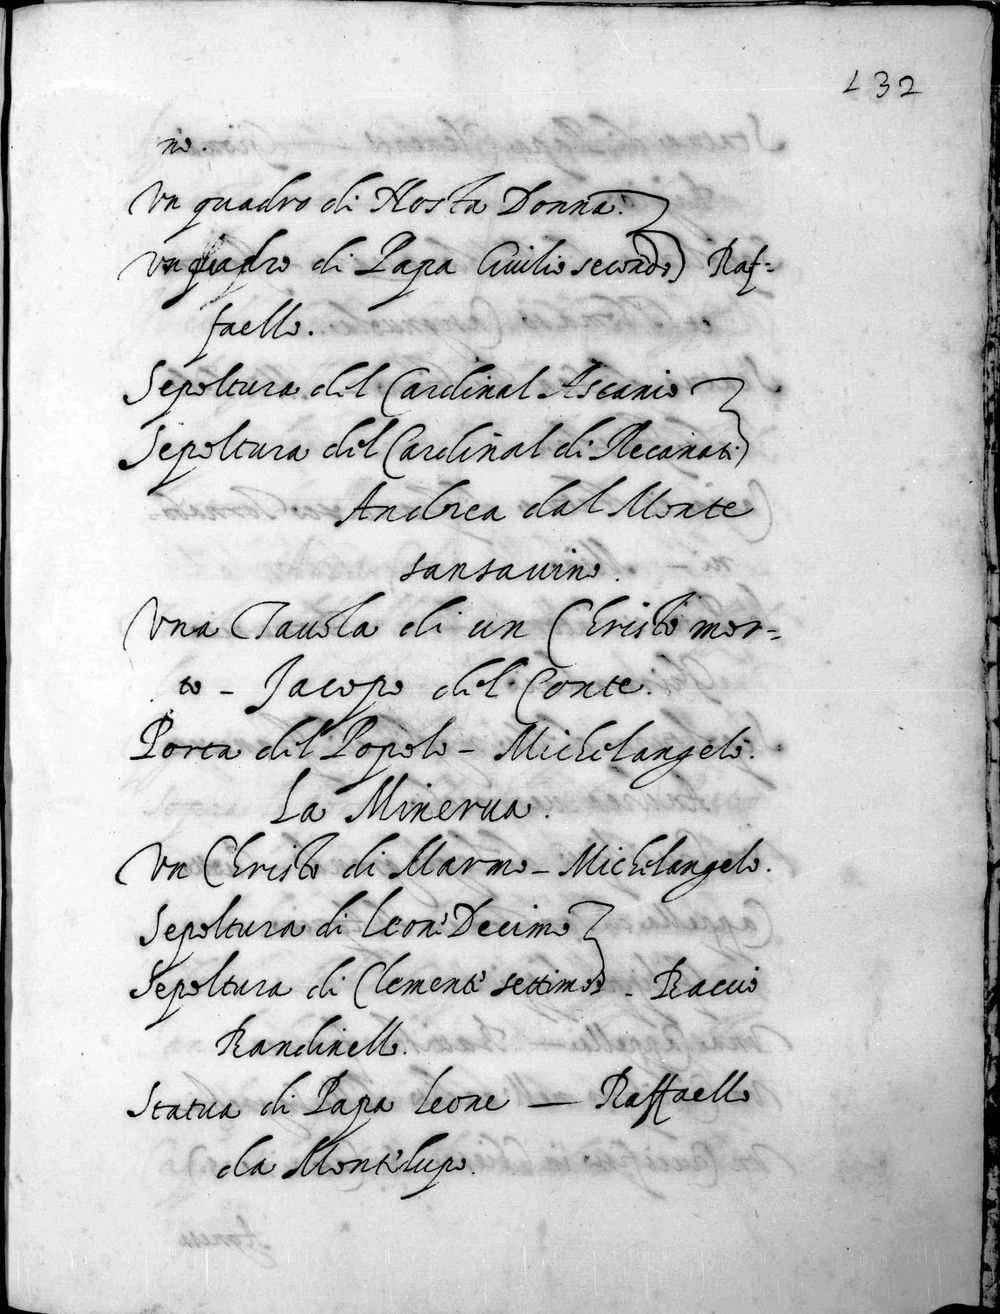 132
no.
Vn quadro di Nostra Donna.
Vn quadro di Papa Giulio secondo) Raf=
faello.
Sepoltura del Cardinal Ascanio
Sepoltura del Cardinal di Recanati)
Andrea dal Monte
sansauino.
Vna Tauola di un Christo mor=
to - Jacopo del Conte.
Porta del Popolo - Michelangelo.
La Minerua.
Vn Christo di Marmo - Michelangelo.
Sepoltura di Leone Decimo
Sepoltura di Clemente settimo) - Baccio
Bandinello.
Statua di Papa Leone — Raffaello
da Montelupo.